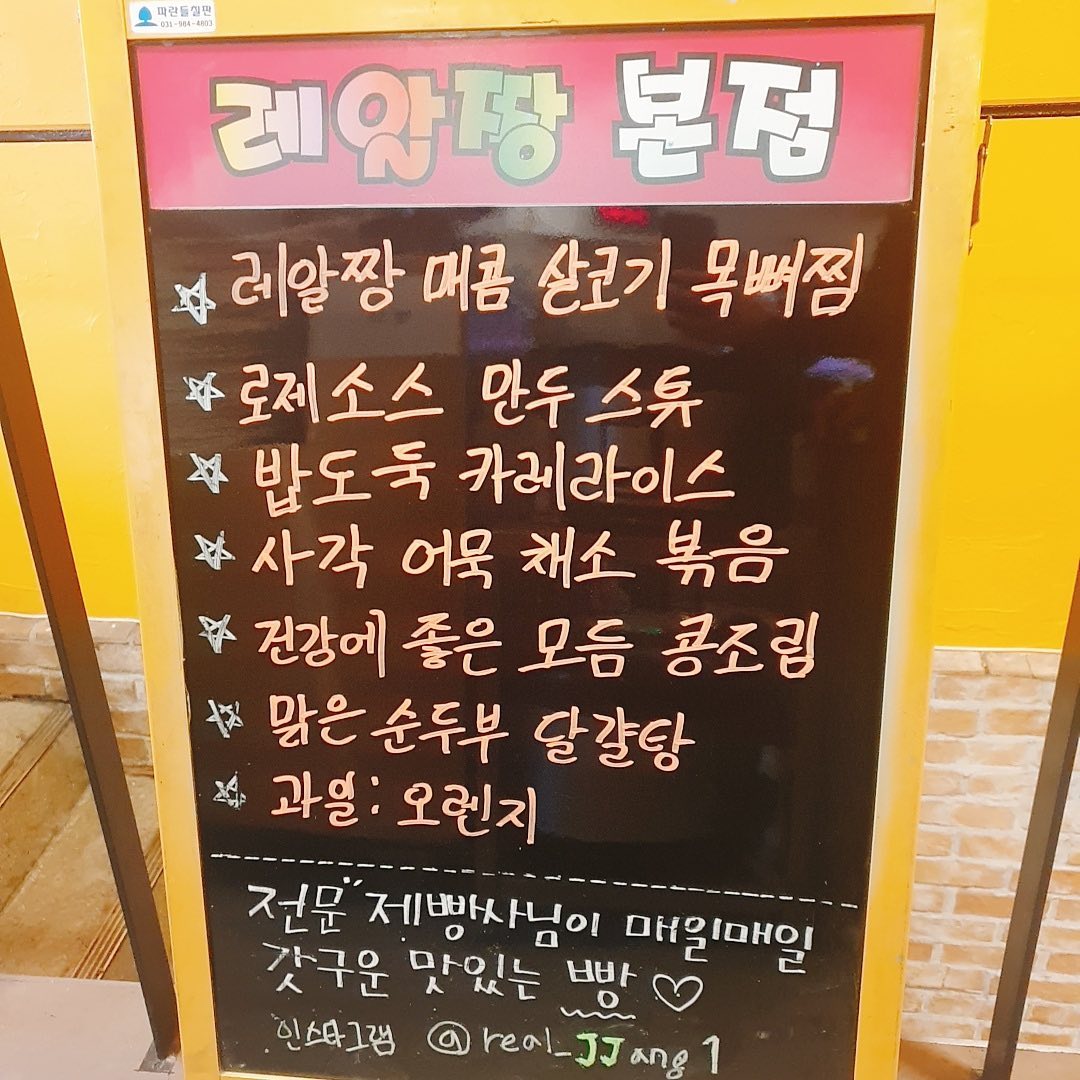 파란들실판
031-984-4803
레알짱 본점
레알짱 매콤 살코기 목뼈찜
로제소스 만두 스튜
밥도둑 카레라이스
사각 어묵 채소 볶음
건강에 좋은 모듬 콩조림
맑은 순두부 달걀탕
과일: 오렌지
전문" 제빵사님이 매일매일
갓구운 맛있는 빵♡
인스타그램 @real_JJang1